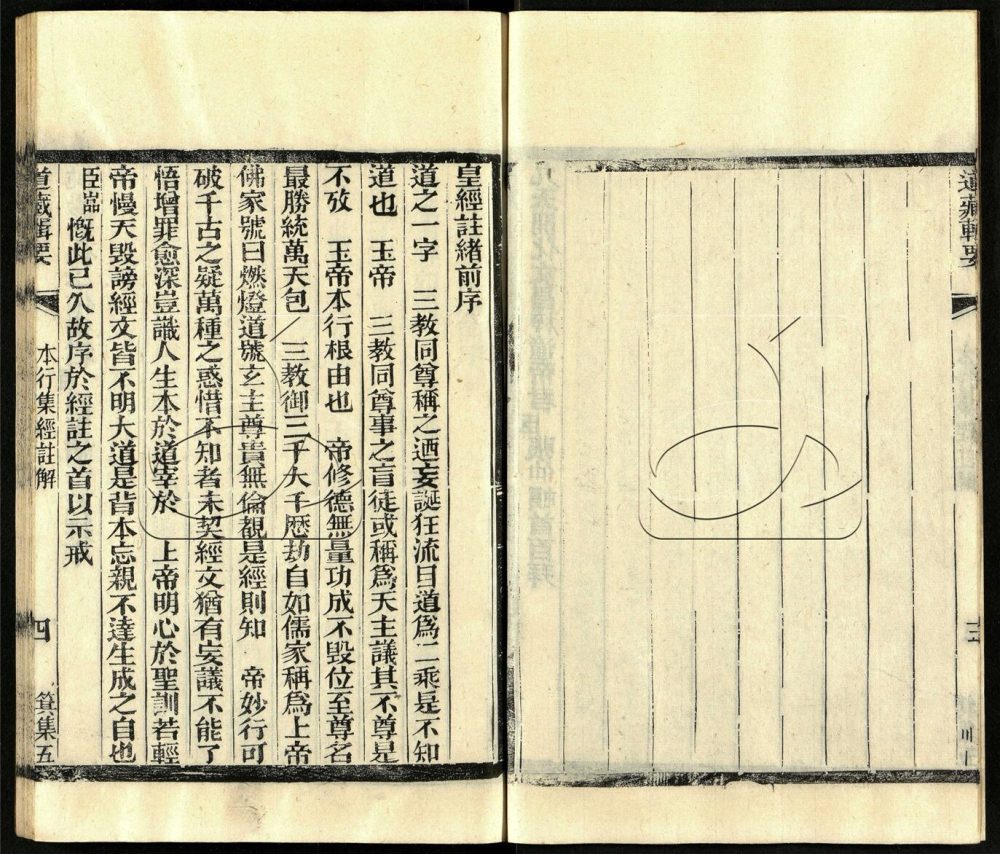 道藏輯要
三
皇經註緒前序
道之一字　三教同尊稱之迺妄誕狂流目道爲二乘是不知
道也　玉帝　三教同尊事之盲徒或稱爲天主議其不尊是
不攷　玉帝本行根由也　帝修德無量功成不毀位至尊名
最勝統萬天包　三教御三千大千歷劫自如儒家稱爲上帝
佛家號曰燃燈道號玄主尊貴無倫覩是經則知　帝妙行可
破千古之疑萬種之惑惜不知者未契經文猶有妄議不能了
悟增罪愈深豈識人生本於道宰於　上帝明心於聖訓若輕
帝慢天毀謗經文皆不明大道是背本忘親不達生成之自也
臣嵓慨此已久故序於經註之首以示戒
道藏輯要
本行集經註解
四
箕集五